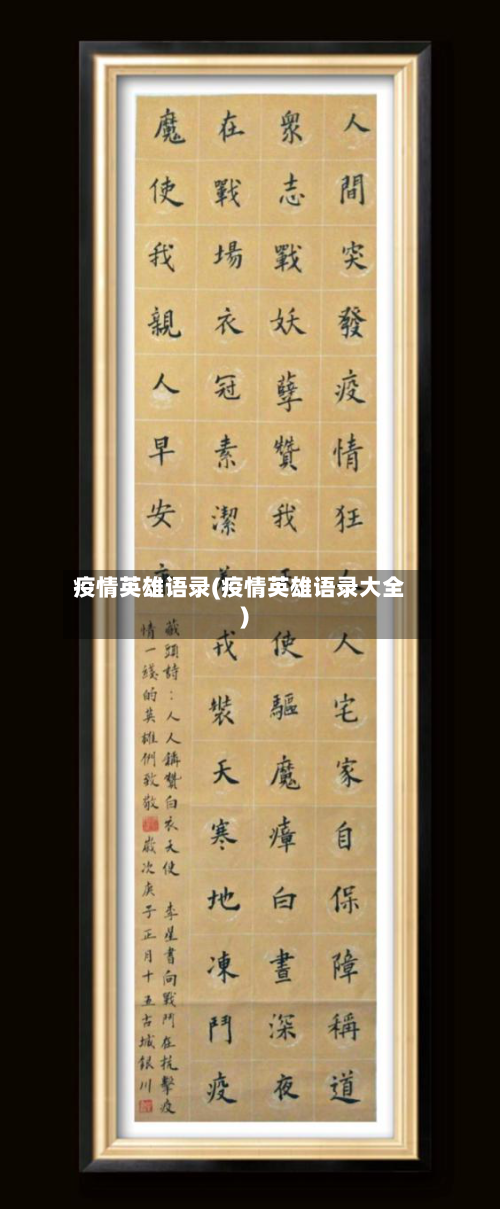 疫情英雄语录(疫情英雄语录大全
)
人間突發疫情狂人宅家自保障稱道
衆志戰妖孽贊我使驅魔瘴白晝深夜
在戰場衣冠素潔戎裝天寒地凍鬥疫
魔使我親人早安
藏頭詩：人人贊白衣天使 李星書向戰鬥在抗擊疫
情一綫的英雄們致敬 歲次庚子正月十五古城銀川